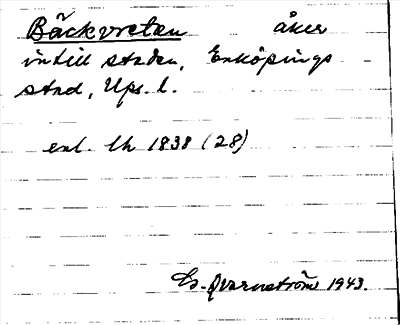 Bäckvretan åker
intill staden, Enköpings
stad, Ups. l.
enl. lh 1838 (28)
Qvarnström 1943.